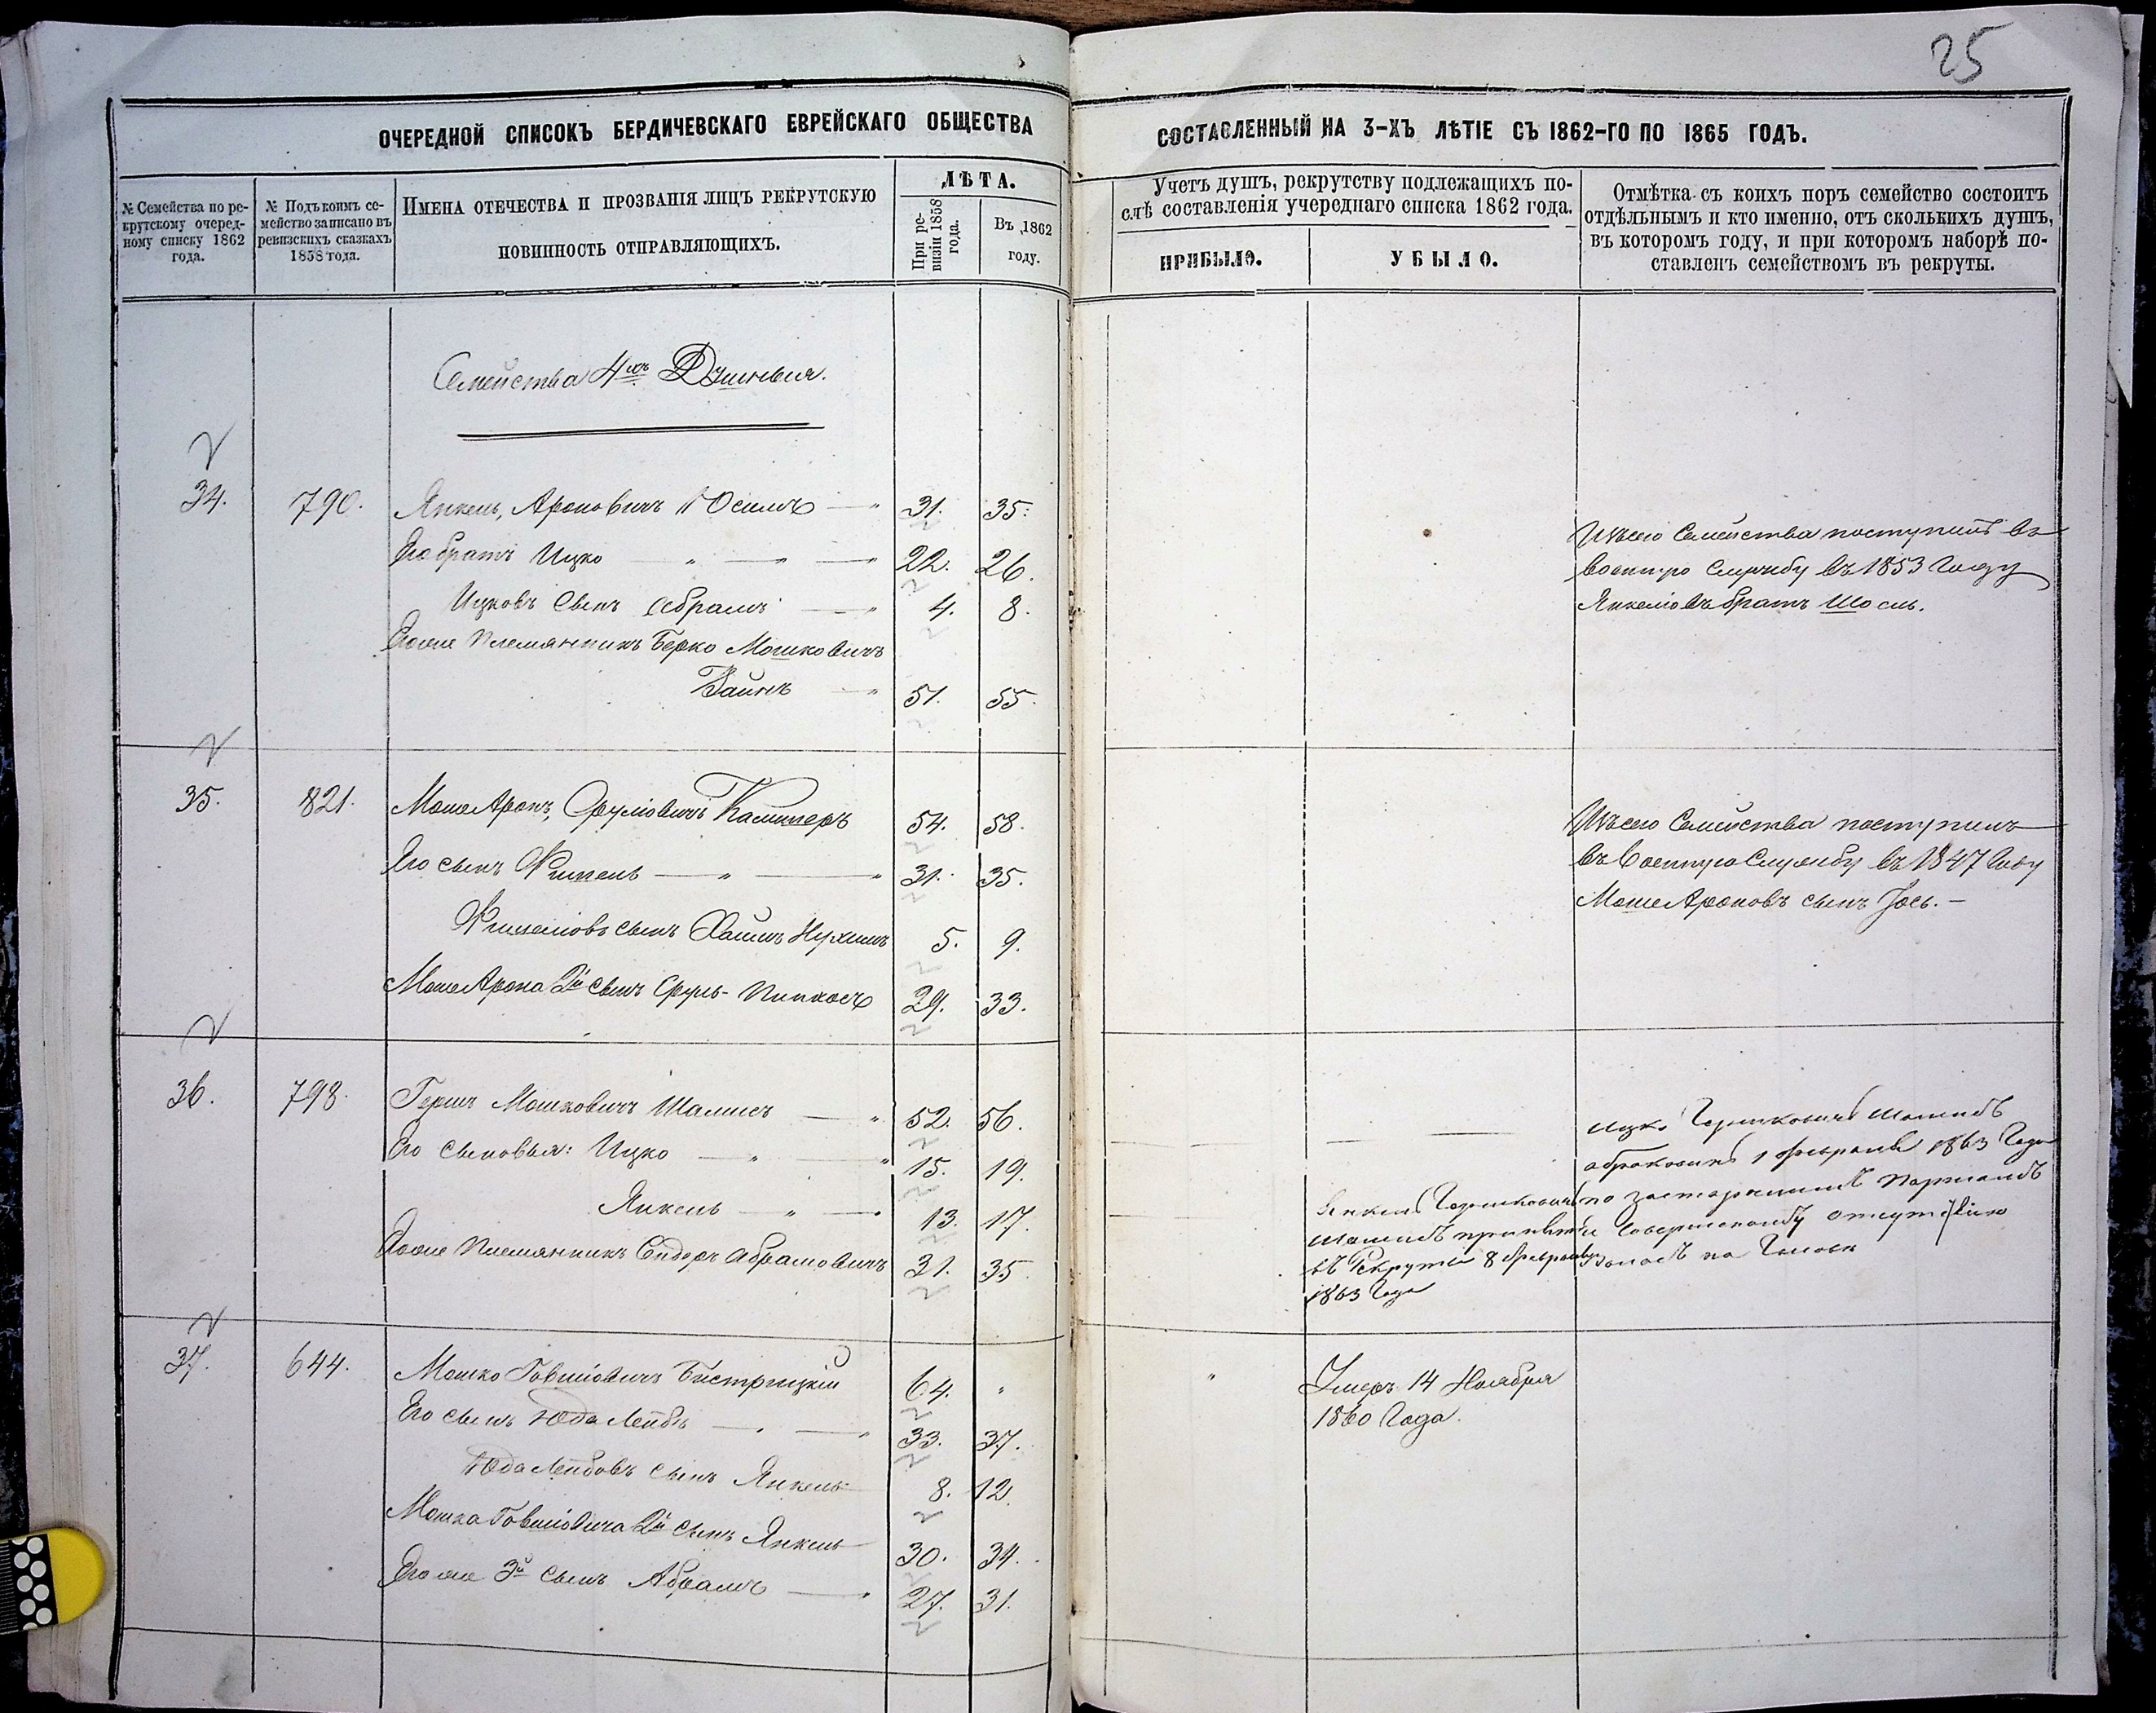 25
ОЧЕРЕДНОЙ СПИСОКЪ БЕРДИЧЕВСКАГО ЕВРЕЙСКАГО ОБЩЕСТВА
№ Семейства по ре-
крутскому очеред-
ному списку 1862
года.
№ Подъ коимъ се-
мейство записано въ
ревизскихъ сказкахъ
1858 года.
ИМЕНА ОТЕЧЕСТВА И ПРОЗВАНІЯ ЛИЦЪ РЕКРУТСКУЮ
ПОВИННОСТЬ ОТПРАВЛЯЮЩИХЪ.
ЛѢТА.
При ре-
визіи 1858
года.
Въ 1862
году.
Семейства 4хъ Душныя.
34. 790. Янкель, Ароновичъ 31. 35.
Его братъ Ицко 22. 26.
Ицковъ сынъ Абрамъ 4. 8.
Его же племянникъ Берко Мошковичъ
Вайнъ 51. 55.
35. 821. МошеАронъ, Сруліовичъ 54. 58.
Его сынъ Фишель 31. 35.
Фишеліовъ сынъ Хаимъ Нухимъ 5. 9.
МошеАрона 2й сынъ Сруль-Пинхасъ 29. 33.
36. 798. Гершъ Мошковичъ Шамисъ 52. 56.
Его сыновья: Ицко 15. 19.
Янкель 13. 17.
Его же племянникъ Сендеръ Абрамовичъ 31. 35.
37. 644. Мошко Говшіовичъ Бистрицкій 64.
Его сынъ Юда Лейбъ 33. 37.
Юда Лейбовъ сынъ Янкель 8. 12.
Мошка Говшіовича 2й сынъ Янкель 30. 34.
Его же 3й сынъ Абрамъ 27. 31.
СОСТАВЛЕННЫЙ НА 3-ХЪ ЛѢТІЕ СЪ 1862-ГО ПО 1865 ГОДЪ.
Учетъ душъ, рекрутству подлежащихъ по-
слѣ составленія учереднаго списка 1862 года.
ПРИБЫЛО.
УБЫЛО.
Отмѣтка съ коихъ поръ семейство состоитъ
отдѣльнымъ и кто именно, отъ сколькихъ душъ,
въ котором году, и при котором наборѣ по-
ставленъ семействомъ въ рекруты.
Изъ сего Семейства поступилъ въ
военную службу въ 1853 году
Янкеліовъ братъ
Изъ сего Семейства поступилъ
въ военную службу въ 1847 году
МошеАроновъ сынъ Іось.
Ицко Гершковичъ Шамисъ
обракованъ 1 февраля 1863 года
по застарелымъ паршамъ
и совершенному отсутствію
волосъ на голове
Янкель Гершковичъ
Шамисъ принятъ
въ Рекруты 8 февраля
1863 года
Умеръ 14 Ноября
1860 года.